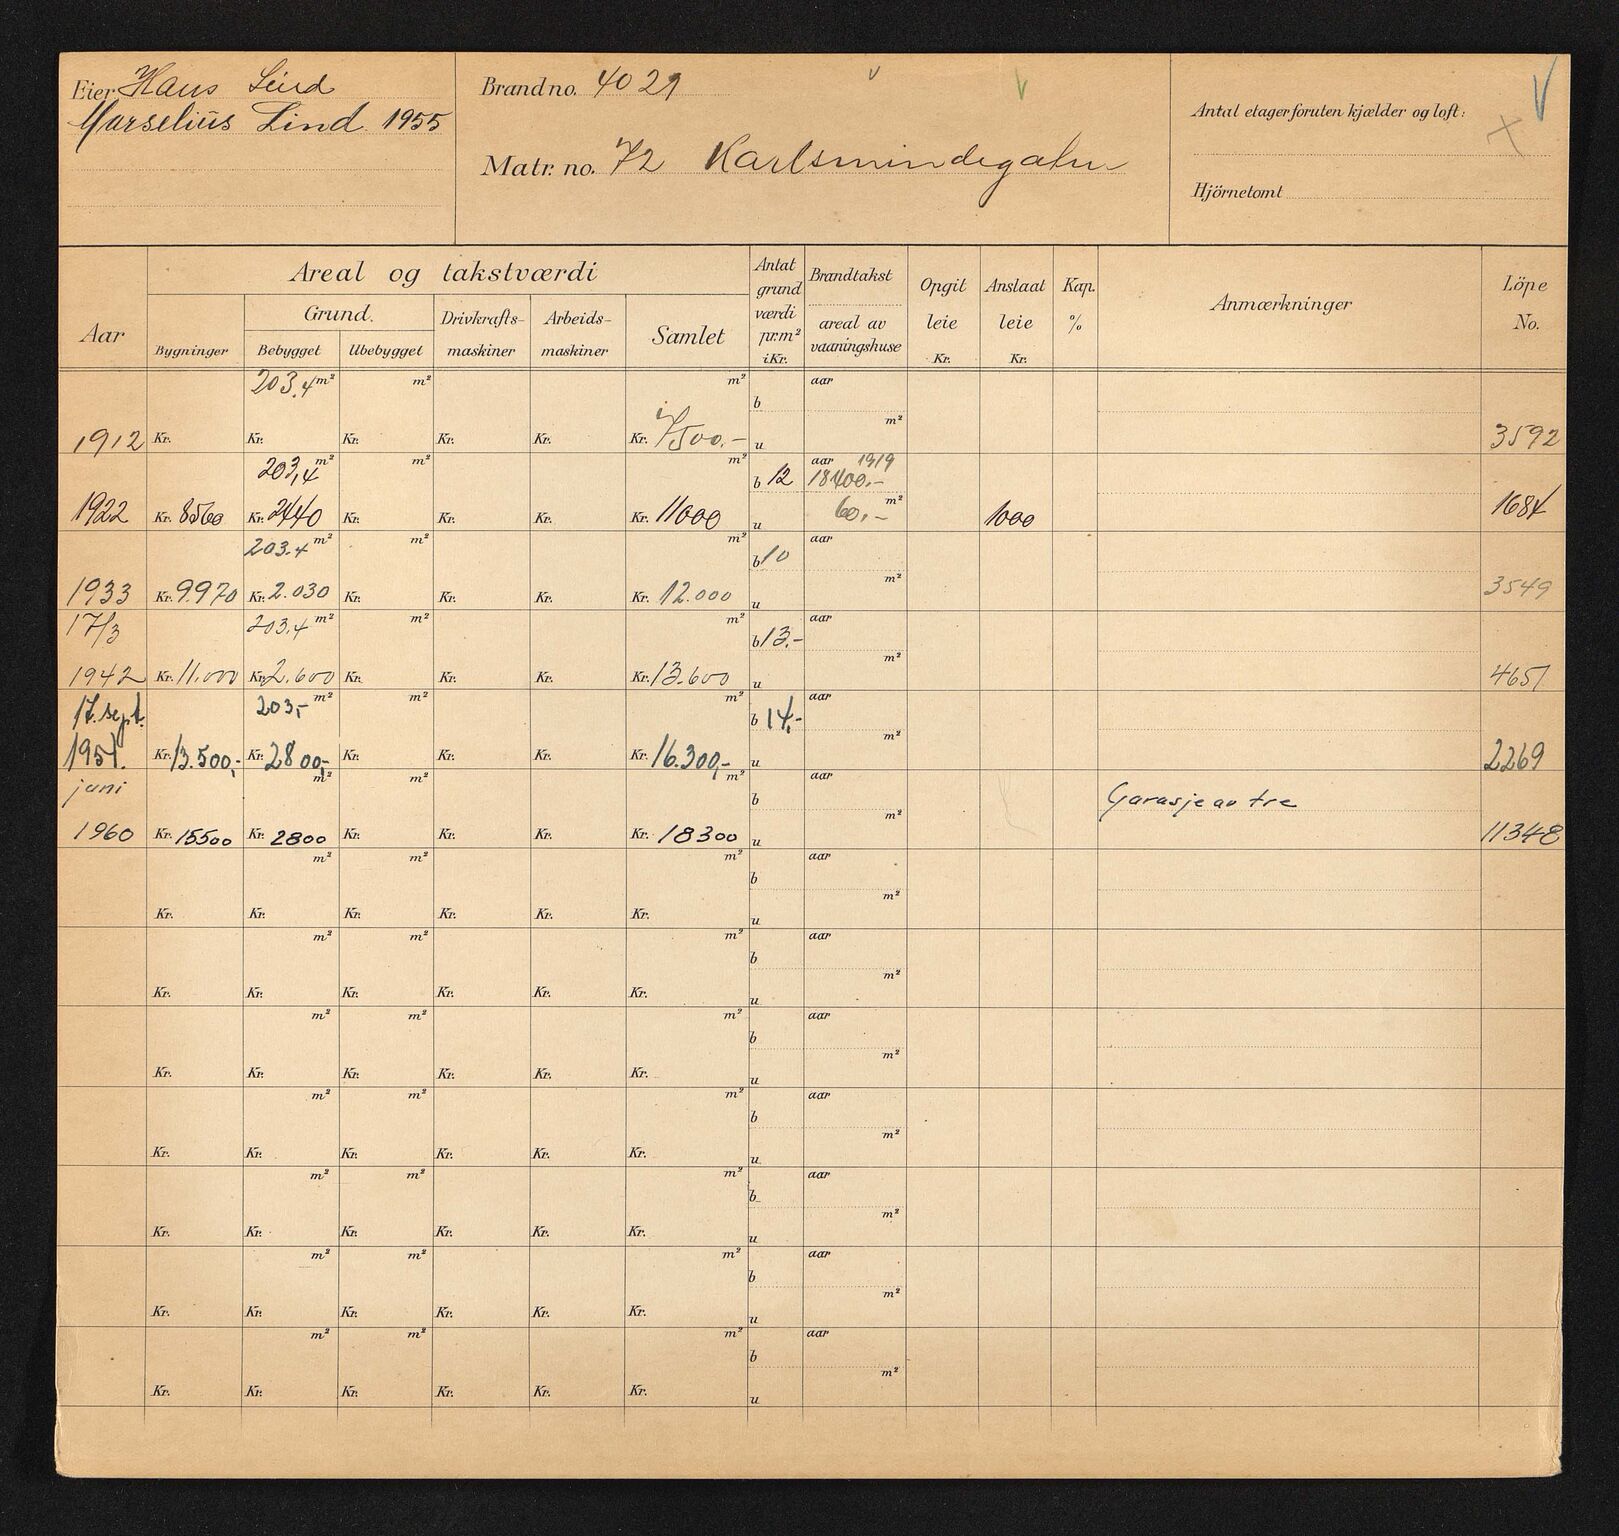 Eier Hans Lind
Marselius Lind 1955
Brand no. 4021
Matr. no. 72 Karlsmindegaten
Antal etager foruten kjælder og loft:
Hjörnetomt
Aar
Areal og takstværdi
Grund.
Bygninger
Bebygget
Ubebygget
Drivkrafts-
maskiner
Arbeids-
maskiner
Samlet
Antat
grund
værdi
pr.m²
i Kr.
Brandtakst
areal av
vaaningshuse
Opgit
leie
Kr.
Anslaat
leie
Kr.
Kap.
%
Anmærkninger
Löpe
No.
203.4 m² m² m² aar
b
m²
1912 Kr. Kr. Kr. Kr. Kr. Kr. 7500.- u 3592
203,4 m² m² m² b 12 aar 1919
18400.-
60.- m²
1922 Kr. 8560 Kr. 2440 Kr. Kr. Kr. Kr. 11000 u 1000 1684
203.4 m² m² m² b 10 aar
m²
1933 Kr. 9.970 Kr. 2.030 Kr. Kr. Kr. Kr. 12.000 u 3549
17/3 203.4 m² m² m² b 13.- aar
m²
1942 Kr. 11.000 Kr. 2.600 Kr. Kr. Kr. Kr. 13.600 u 4651
17. sept. 203,- m² m² m² b 14,- aar
m²
1951. Kr. 13.500,- Kr. 2800,- Kr. Kr. Kr. Kr. 16.300,- u 2269
juni m² m² m² b aar Garasje av tre
m²
1960 Kr. 15500 Kr. 2800 Kr. Kr. Kr. Kr. 18300 u 11348
m² m² m² aar
b
m²
Kr. Kr. Kr. Kr. Kr. Kr. u
m² m² m² aar
b
m²
Kr. Kr. Kr. Kr. Kr. Kr. u
m² m² m² aar
b
m²
Kr. Kr. Kr. Kr. Kr. Kr. u
m² m² m² aar
b
m²
Kr. Kr. Kr. Kr. Kr. Kr. u
m² m² m² aar
b
m²
Kr. Kr. Kr. Kr. Kr. Kr. u
m² m² m² aar
b
m²
Kr. Kr. Kr. Kr. Kr. Kr. u
m² m² m² aar
b
m²
Kr. Kr. Kr. Kr. Kr. Kr. u